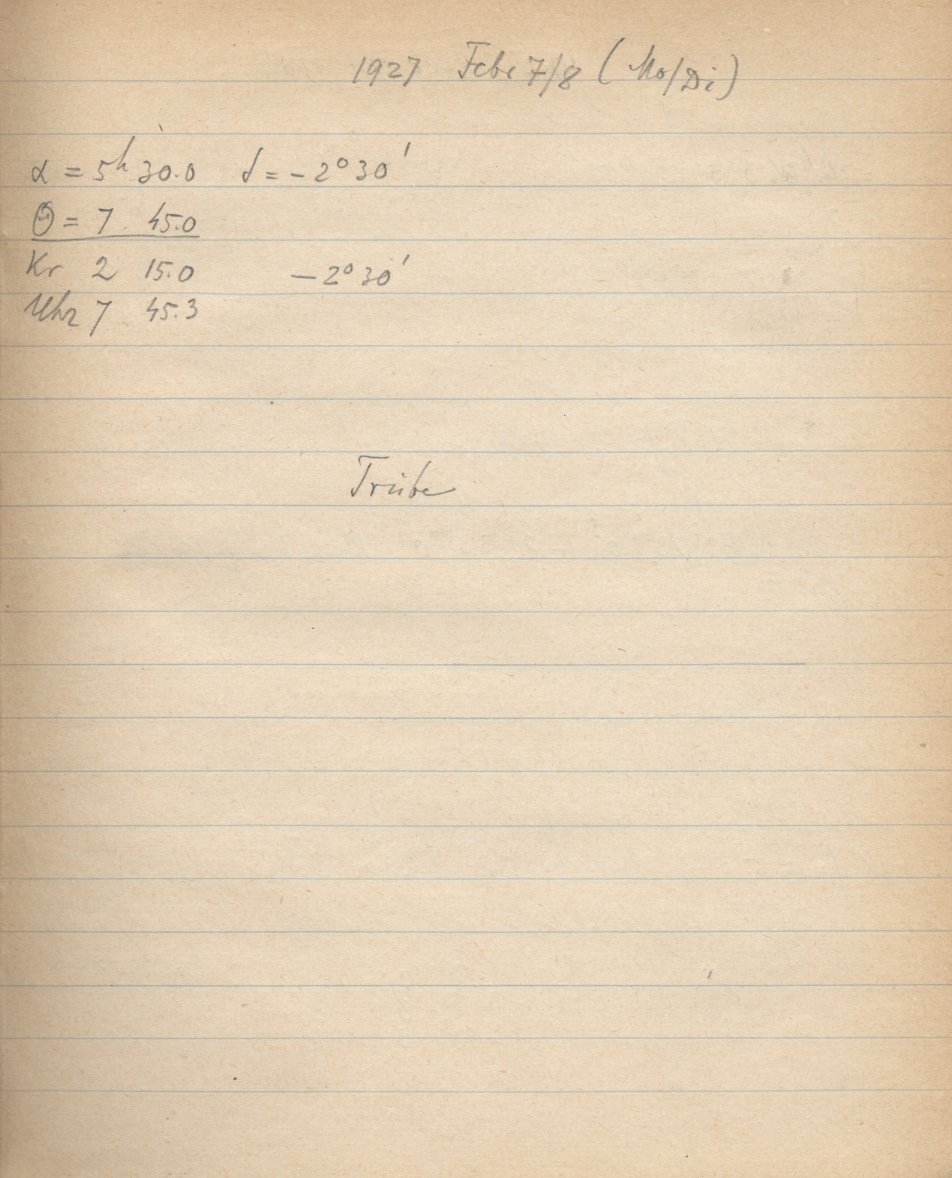 1927 Febr 7/8 (Mo/Di)
α = 5h 30.0 δ = -2° 30'
Θ = 7 45.0
Kr 2 15.0 -2° 30'
Uhr 7 45.3
Trübe